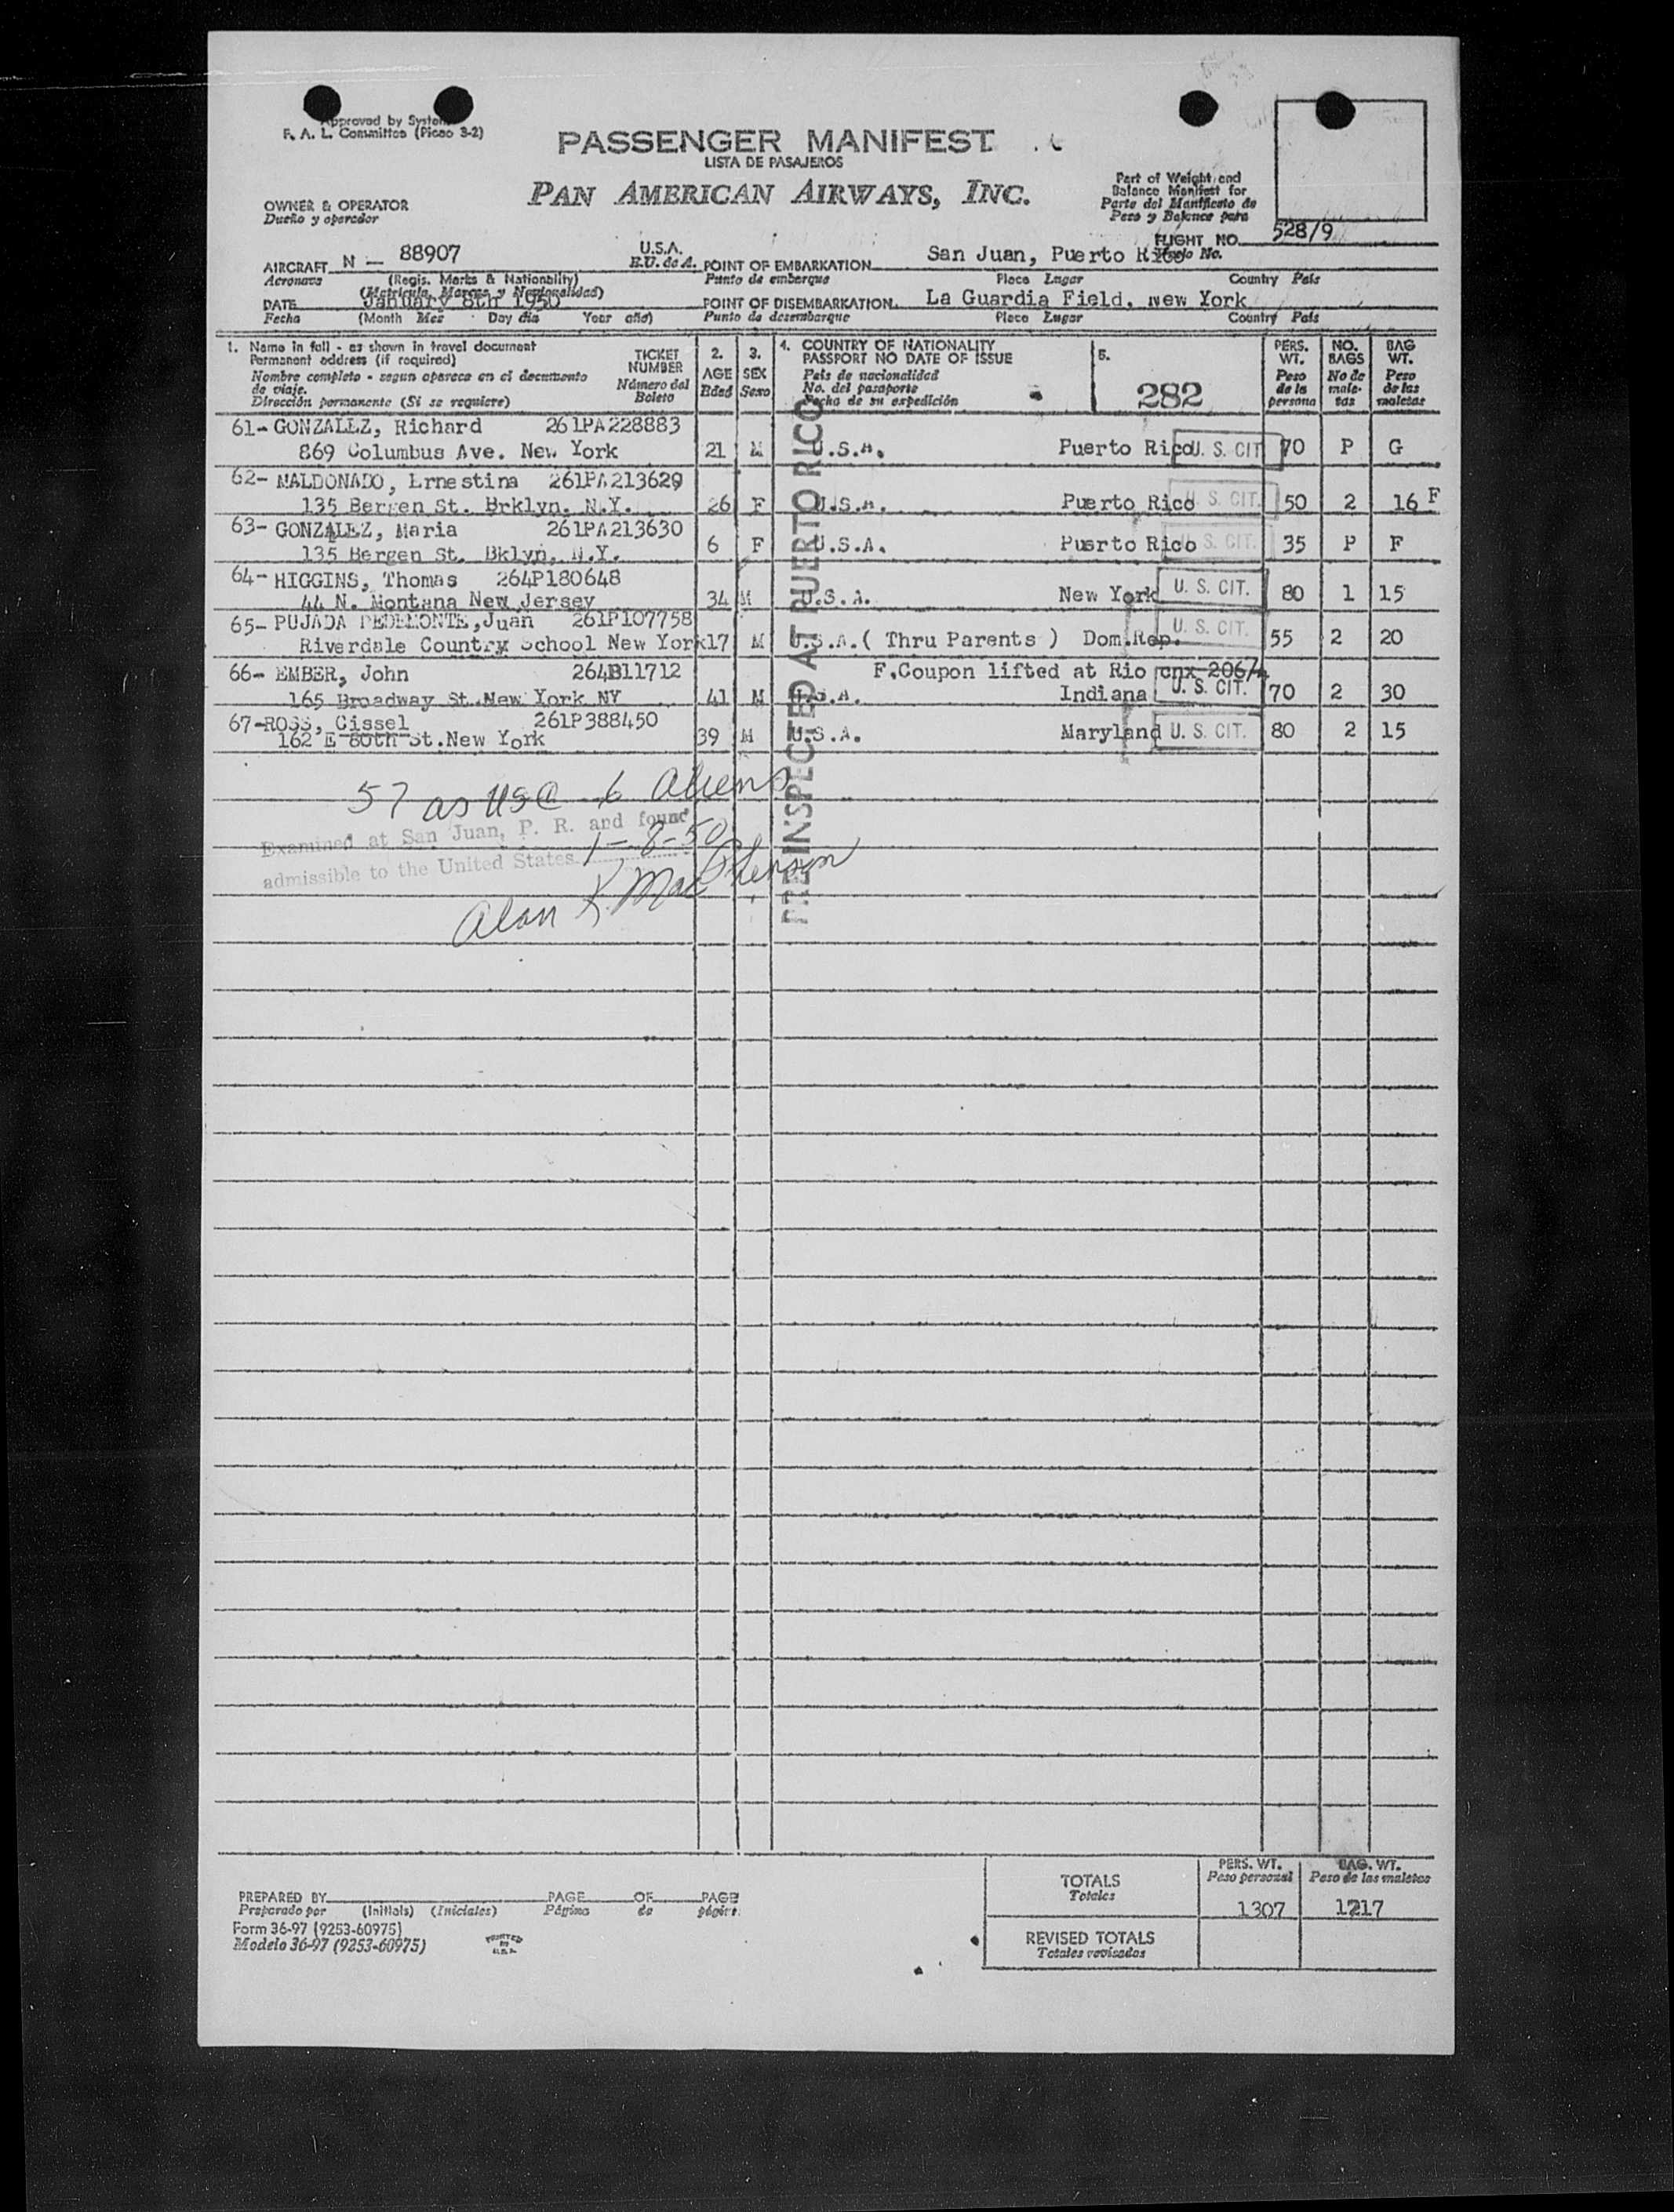 Approved by System
F. A. L. Committee (Picao 3-2)
PASSENGER MANIFEST
LISTA DE PASAJEROS
PAN AMERICAN AIRWAYS, INC.
Part of Weight and
Balance Manifest for
Parte del Manifiesto de
Peso y Balance para
OWNER & OPERATOR
Dueño y operador
FLIGHT NO. 528/9
Vuelo No.
AIRCRAFT N - 88907 U.S.A. POINT OF EMBARKATION San Juan, Puerto Rico
Aeronave (Regis. Marks & Nationality) E.U. de A. Punto de embarque Place Lugar Country País
(Matrícula, Marcas y Nacionalidad)
DATE January 8th 1950 POINT OF DISEMBARKATION La Guardia Field, New York
Fecha (Month Mes Day día Year año) Punto de desembarque Place Lugar Country País
1. Name in full - as shown in travel document
Permanent address (if required)
Nombre completo - segun aparece en el documento
de viaje.
Dirección permanente (Si se requiere)
TICKET
NUMBER
Número del
Boleto
2.
AGE
Edad
3.
SEX
Sexo
4. COUNTRY OF NATIONALITY
PASSPORT NO DATE OF ISSUE
País de nacionalidad
No. del pasaporte
Fecha de su expedición
5.
282
PERS.
WT.
Peso
de la
persona
NO.
BAGS
No de
male-
tas
BAG
WT.
Peso
de las
maletas
61- GONZALEZ, Richard 261PA228883
869 Columbus Ave. New York 21 M U.S.A. Puerto Rico U. S. CIT 70 P G
62- MALDONADO, Ernestina 261PA213629
135 Bergen St. Brklyn. N.Y. 26 F U.S.A. Puerto Rico U. S. CIT. 50 2 16 F
63- GONZALEZ, Maria 261PA213630
135 Bergen St. Bklyn, N.Y. 6 F U.S.A. Puerto Rico U. S. CIT. 35 P F
64- HIGGINS, Thomas 264P180648
44 N. Montana New Jersey 34 M U.S.A. New York U. S. CIT. 80 1 15
65- PUJADA PEDEMONTE, Juan 261P107758
Riverdale Country School New York 17 M U.S.A. ( Thru Parents ) Dom.Rep. U. S. CIT. 55 2 20
66- EMBER, John 264B11712 F.Coupon lifted at Rio cnx 206/4
165 Broadway St.New York NY 41 M U.S.A. Indiana U. S. CIT. 70 2 30
67-ROSS, Cissel 261P388450
162 E 80th St.New York 39 M U.S.A. Maryland U. S. CIT. 80 2 15
PRE-INSPECTED AT PUERTO RICO
57 as USC 6 aliens
Examined at San Juan, P. R. and found
admissible to the United States 1-8-50
Alan K. MacPherson
TOTALS
Totales
PERS. WT.
Peso personal
BAG. WT.
Peso de las maletas
1307 1217
REVISED TOTALS
Totales revisados
PREPARED BY PAGE OF PAGE
Preparado por (Initials) (Iniciales) Página de página
Form 36-97 (9253-60975)
Modelo 36-97 (9253-60975)
PRINTED
IN
U.S.A.